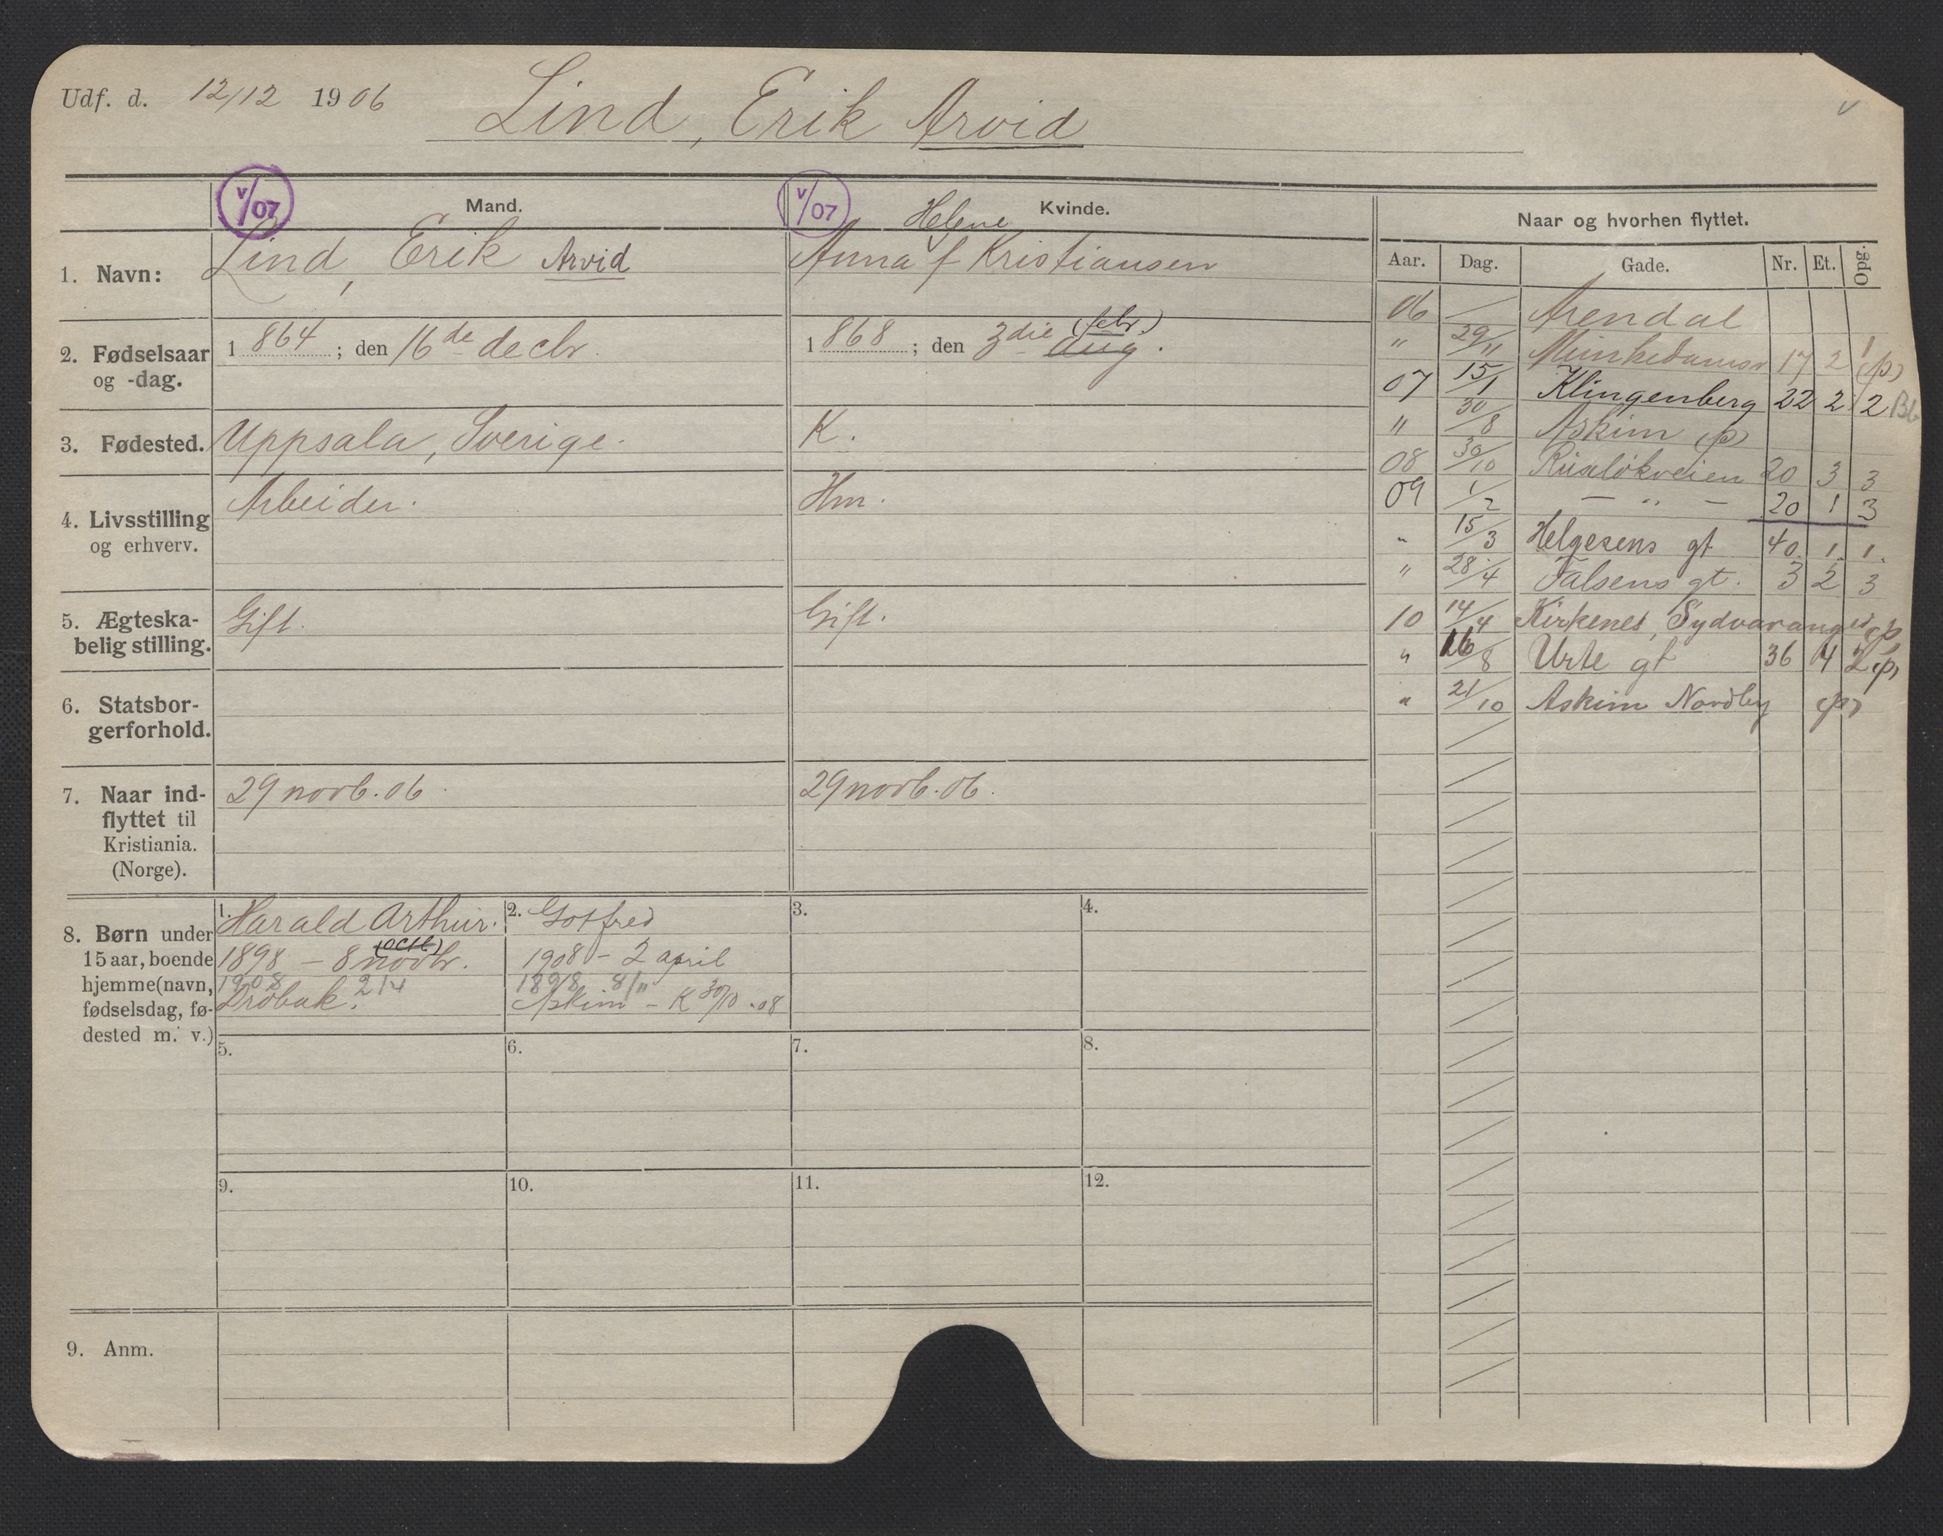 Udf. d. 12/12 1906 Lind, Erik Arvid v
v/07 Mand. v/07 Kvinde. Naar og hvorhen flyttet.
Aar. Dag. Gade. Nr. Et. Opg.
1. Navn: Lind, Erik Arvid
Helene
Anna f Kristiansen
2. Fødselsaar og -dag.
1864; den 16de decbr.
1868; den 3die aug. (febr.)
3. Fødested. Uppsala, Sverige. K.
4. Livsstilling og erhverv.
Arbeider. Hm.
5. Ægteska-
belig stilling.
Gift. Gift.
6. Statsbor-
gerforhold.
7. Naar ind-
flyttet til
Kristiania.
(Norge).
29 novb. 06. 29 novb. 06.
8. Børn under
15 aar, boende
hjemme (navn,
fødselsdag, fø-
dested m. v.)
1. Harald Arthur.
1898 - 8 novbr. (octb)
1908 2/4
Drøbak.
2. Gotfred
1908 - 2 april
1898 8/11
Askim - K 30/10 .08
3. 4.
5. 6. 7. 8.
9. 10. 11. 12.
9. Anm.
06 — Arendal
" 29/11 Munkedamsv 17 2 1 (p)
07 15/1 Klingenberg 22 2 2 Bb
" 30/8 Askim (p)
08 30/10 Ruseløkveien 20 3 3
09 1/2 — " — 20 1 3
" 15/3 Helgesens gt 40. 1. 1.
" 28/4 Falsens gt. 3 2 3
10 14/4 Kirkenes, Sydvaranger (p)
" 16/8 Urte gt 36 4 2 (p)
" 21/10 Askim Nordby (p)